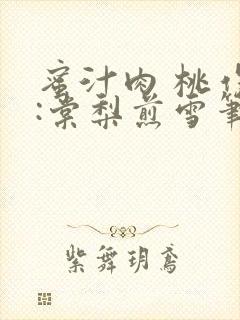 蜜汁肉桃作
:棠梨煎雪筆
紫舞玥鸢